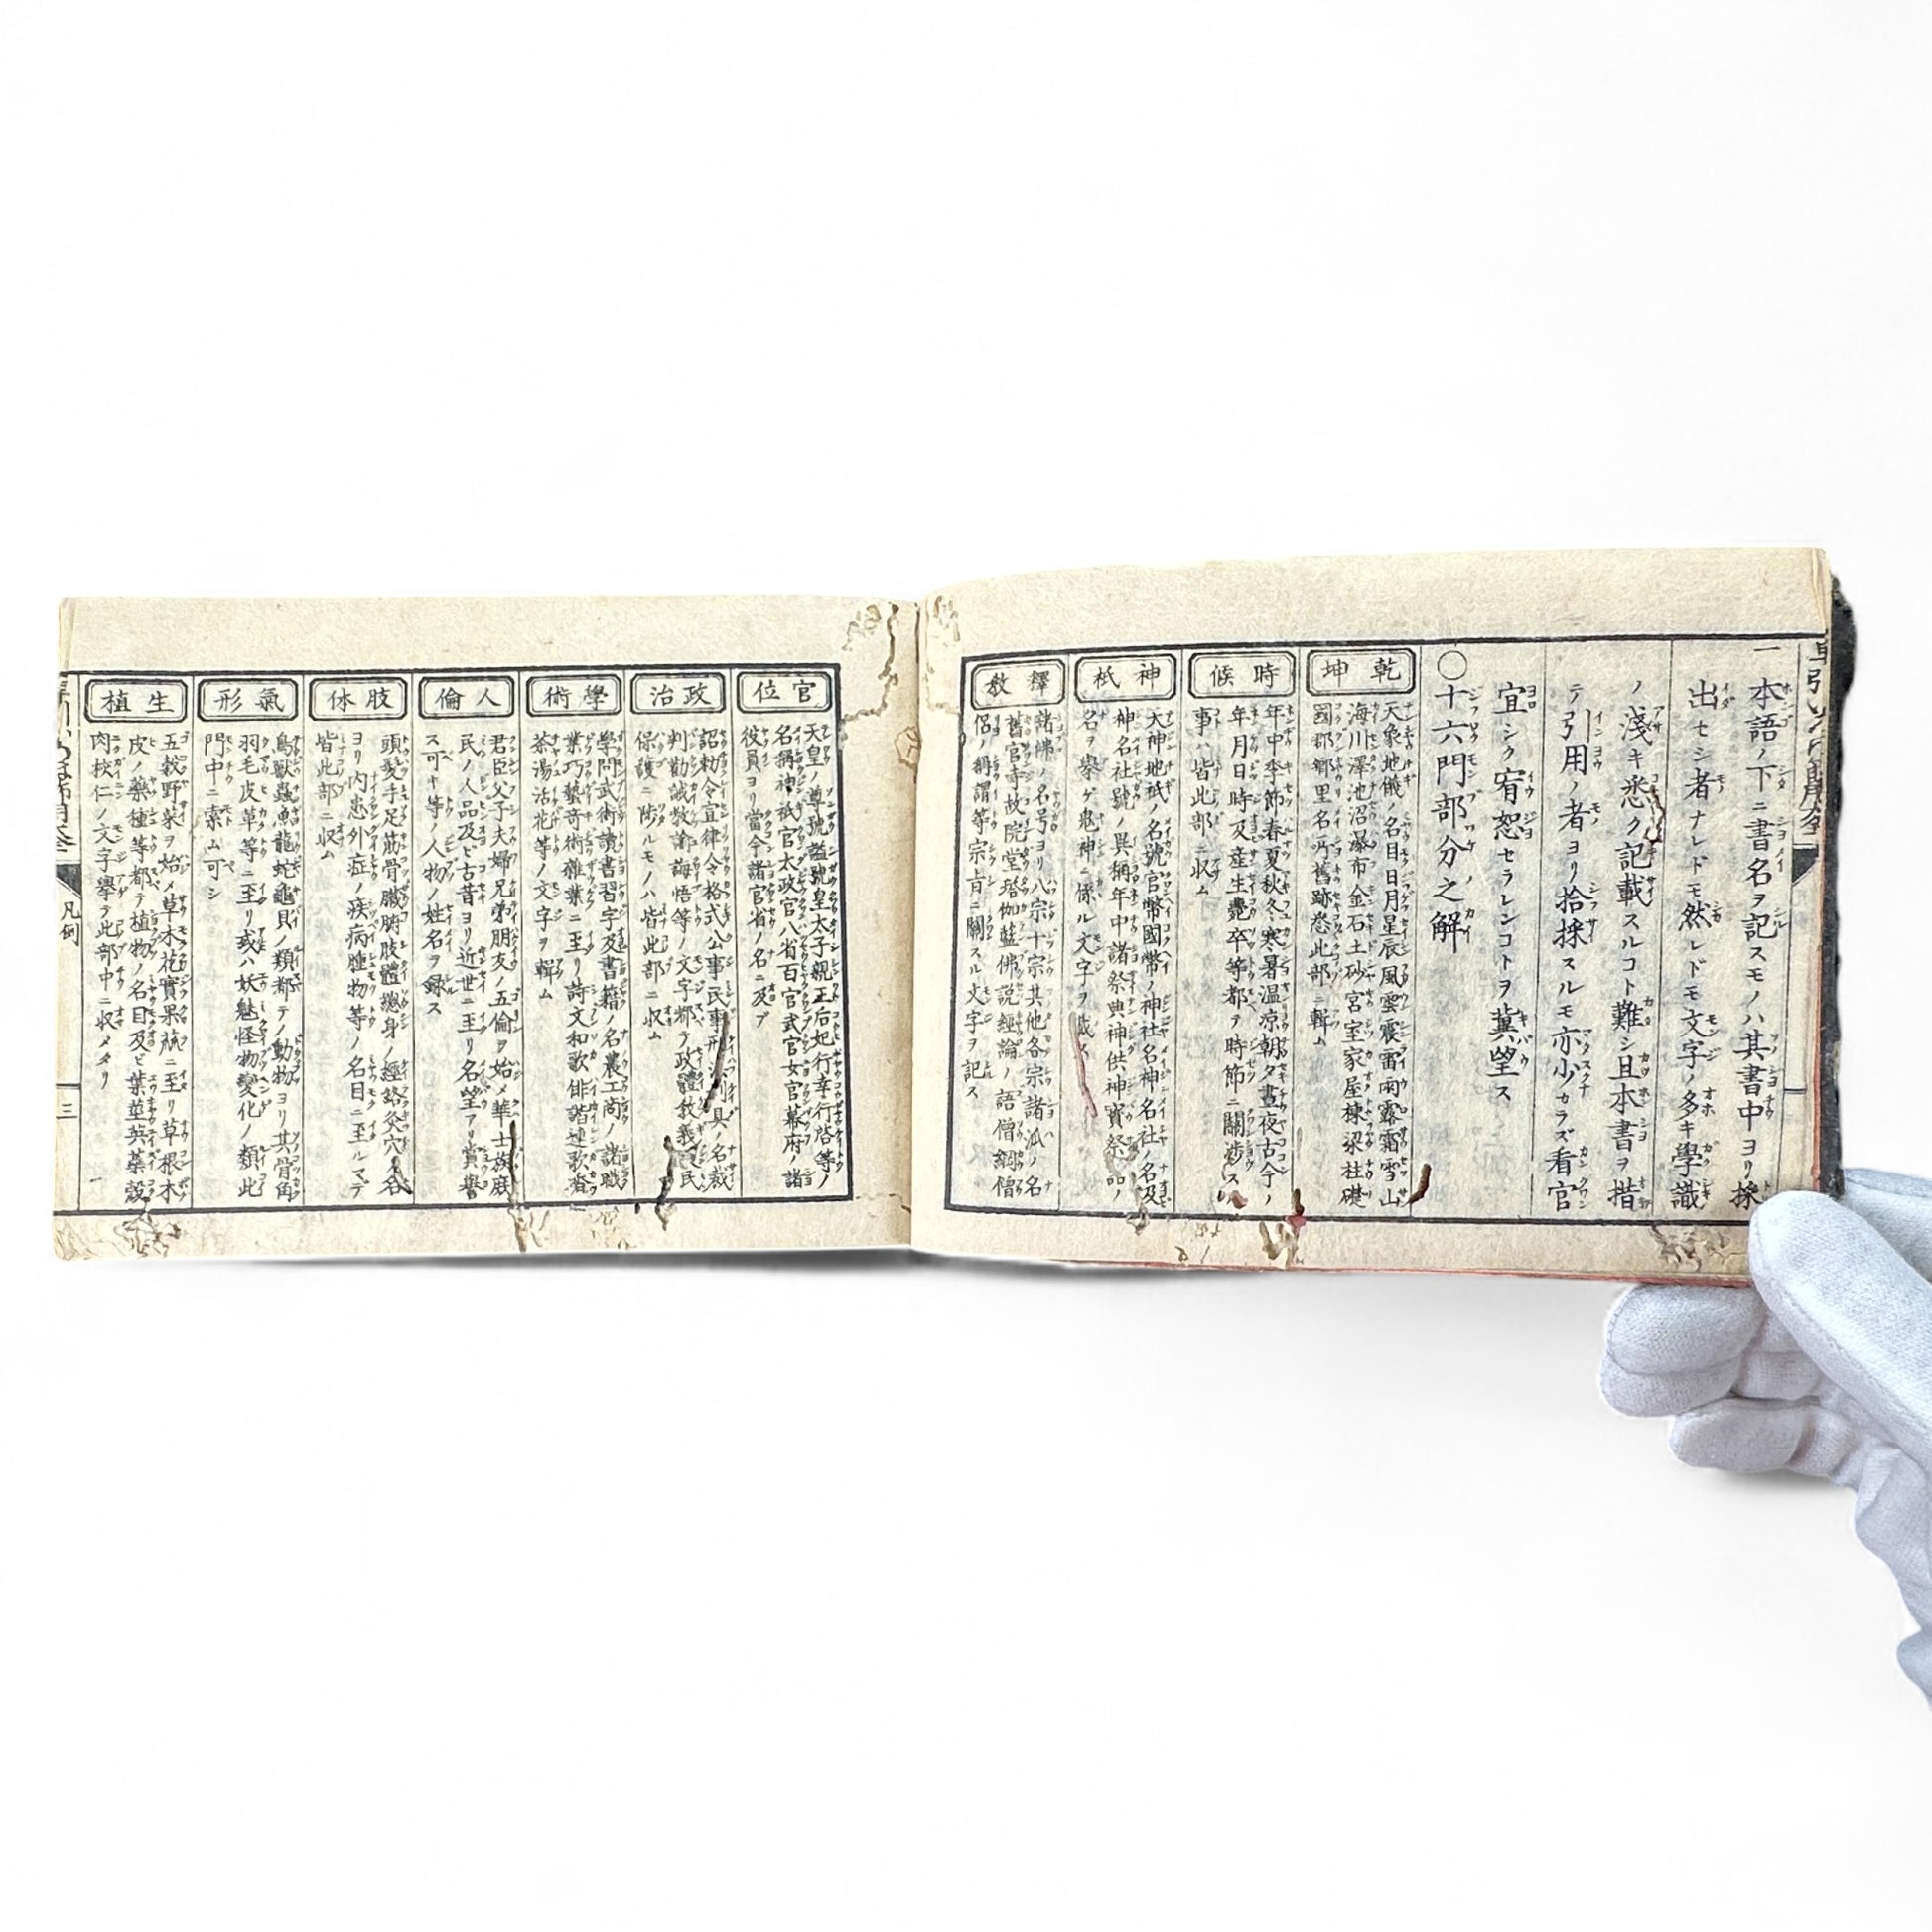 一本語ノ下ニ書名ヲ記スモノハ其書中ヨリ採
出セシ者ナレドモ然レドモ文字ノ多キ學識
ノ淺キ悉ク記載スルコト難シ且本書ヲ措
テ引用ノ者ヨリ拾採スルモ亦少カラズ看官
宜シク宥恕セラレンコトヲ冀望ス
〇十六門部分之解
乾坤
天象地儀ノ名目日月星辰風雲震雷雨露霜雪山
海川澤池沼瀑布金石土砂宮室家屋棟梁柱礎
國郡郷里名所舊跡悉此部ニ輯ム
時候
年中季節春夏秋冬寒暑温凉朝夕晝夜古今ノ
年月日時及産生薨卒等都テ時節ニ關渉スル
事ハ皆此部ニ収ム
神祇
天神地祇ノ名號官幣國幣ノ神社名神名社ノ名及
神名社號ノ異稱年中諸祭典神供神寳祭品ノ
名ヲ擧ゲ鬼神ニ係ル文字ヲ載ス
釋敎
諸佛ノ名号ヨリ八宗十宗其他各宗諸派ノ名
舊官寺故院堂塔伽藍佛説經論ノ語僧綱僧
侶ノ稱謂等宗旨ニ關スル文字ヲ記ス
官位
天皇ノ尊號謚號皇太子親王后妃行幸行啓等ノ
名稱神祇官太政官八省百官武官女官幕府ノ諸
役員ヨリ當今諸官省ノ名ニ及ブ
政治
詔勅令宣律令格式公事民事刑法刑具ノ名裁
判勸誡敎諭誨悟等ノ文字都テ政體敎義民
保護ニ渉ルモノハ皆此部ニ収ム
學術
學問武術讀書習字及書籍ノ名農工商ノ諸職
業巧藝奇術雜業ニ至リ詩文和歌俳諧連歌香
茶湯活花等ノ文字ヲ輯ム
人倫
君臣父子夫婦兄弟朋友ノ五倫ヲ始メ華士族庶
民ノ人品及ビ古昔ヨリ近世ニ至リ名望アリ賞譽
ス可キ等ノ人物ノ姓名ヲ録ス
肢体
頭髪手足筋骨臟腑肢體總身ノ經絡灸穴ノ名
ヨリ内患外症ノ疾病腫物等ノ名目ニ至ルマデ
皆此部ニ収ム
氣形
鳥獸蟲魚龍蛇龜貝ノ類都テノ動物ヨリ其骨角
羽毛皮革等ニ至リ或ハ妖魅怪物變化ノ類此
門中ニ索ム可シ
生植
五穀野菜ヲ始メ草木花實果蓏ニ至リ草根木
皮ノ藥種等都テ植物ノ名目及ビ葉莖英蘂殼
肉核仁ノ文字擧テ此部中ニ収メタリ
凡例
三